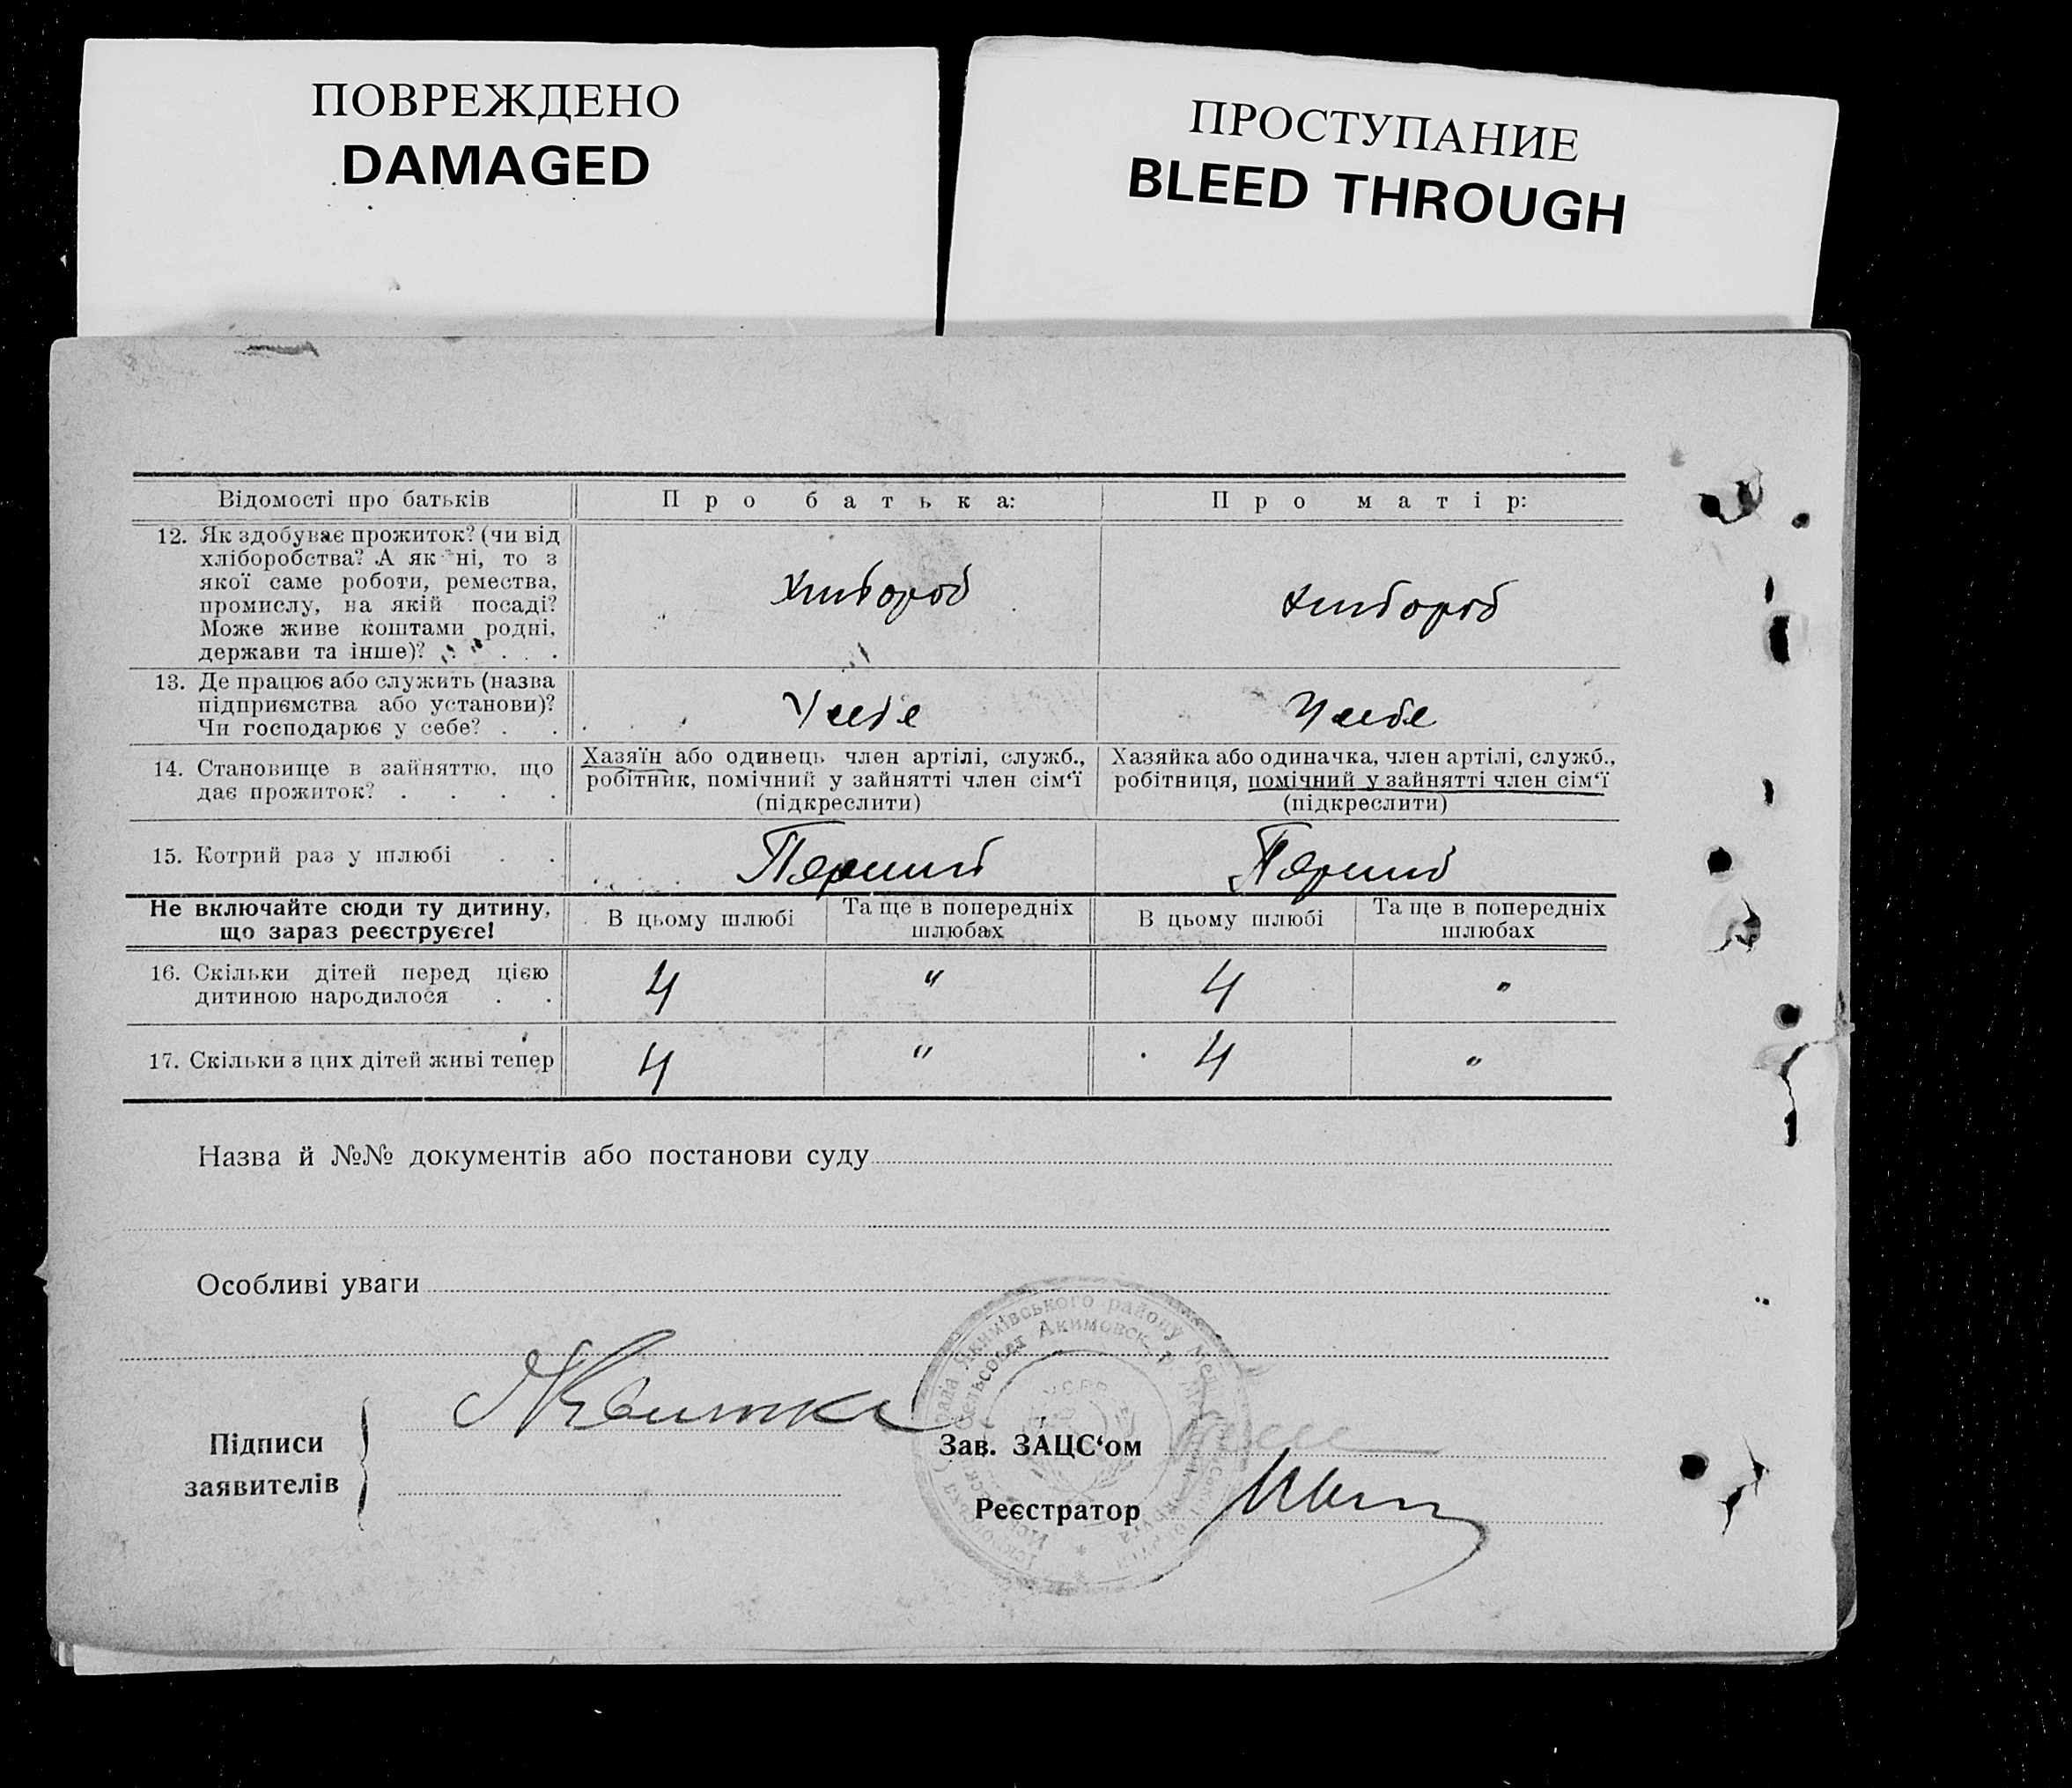 ПОВРЕЖДЕНО
DAMAGED
ПРОСТУПАНИЕ
BLEED THROUGH
Відомості про батьків
Про батька:
Про матір:
12. Як здобуває прожиток? (чи від
хліборобства? А як ні, то з
якої саме роботи, ремества,
промислу, на якій посаді?
Може живе коштами родні,
держави та інше)? . . . .
Хлібороб
Хлібороб
13. Де працює або служить (назва
підприємства або установи)?
Чи господарює у себе? . .
У себе
У себе
14. Становище в зайняттю, що
дає прожиток? . . . .
Хазяїн або одинець член артілі, служб.,
робітник, помічний у зайнятті член сім‘ї
(підкреслити)
Хазяйка або одиначка, член артілі, служб.,
робітниця, помічний у зайнятті член сім‘ї
(підкреслити)
15. Котрий раз у шлюбі . .
Перший
Перший
Не включайте сюди ту дитину,
що зараз реєструєте!
В цьому шлюбі
Та ще в попередніх
шлюбах
В цьому шлюбі
Та ще в попередніх
шлюбах
16. Скільки дітей перед цією
дитиною народилося . .
4
"
4
"
17. Скільки з цих дітей живі тепер
4
"
4
"
Назва й №№ документів або постанови суду
Особливі уваги
Підписи
заявителів
Квитка
Зав. ЗАЦС‘ом
Реєстратор
Якимівського району
сельсовет Акимовск
УСРР